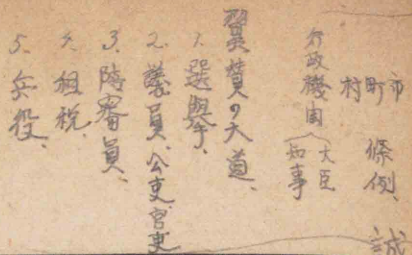 市町村 條例、誠
行政機関 大臣 知事
翼賛の大道、
1. 選挙、
2. 議員、公吏官吏
3. 陪審員、
4. 租税、
5. 兵役、